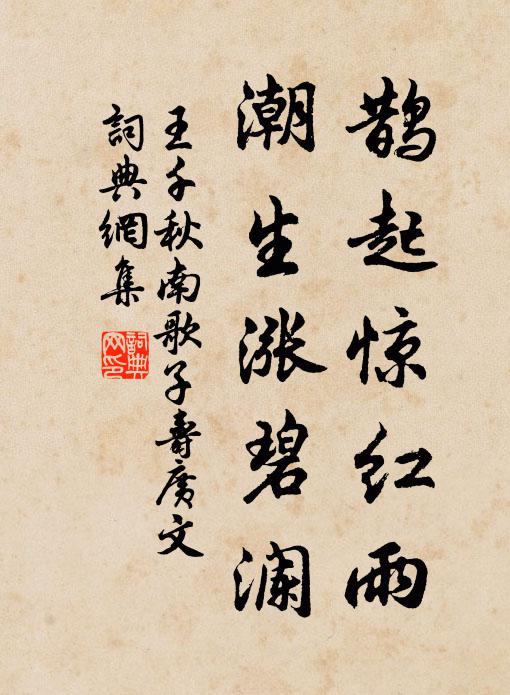 鹊起惊红雨
潮生涨碧澜
王千秋南歌子寿广文
词典网集
词典网印